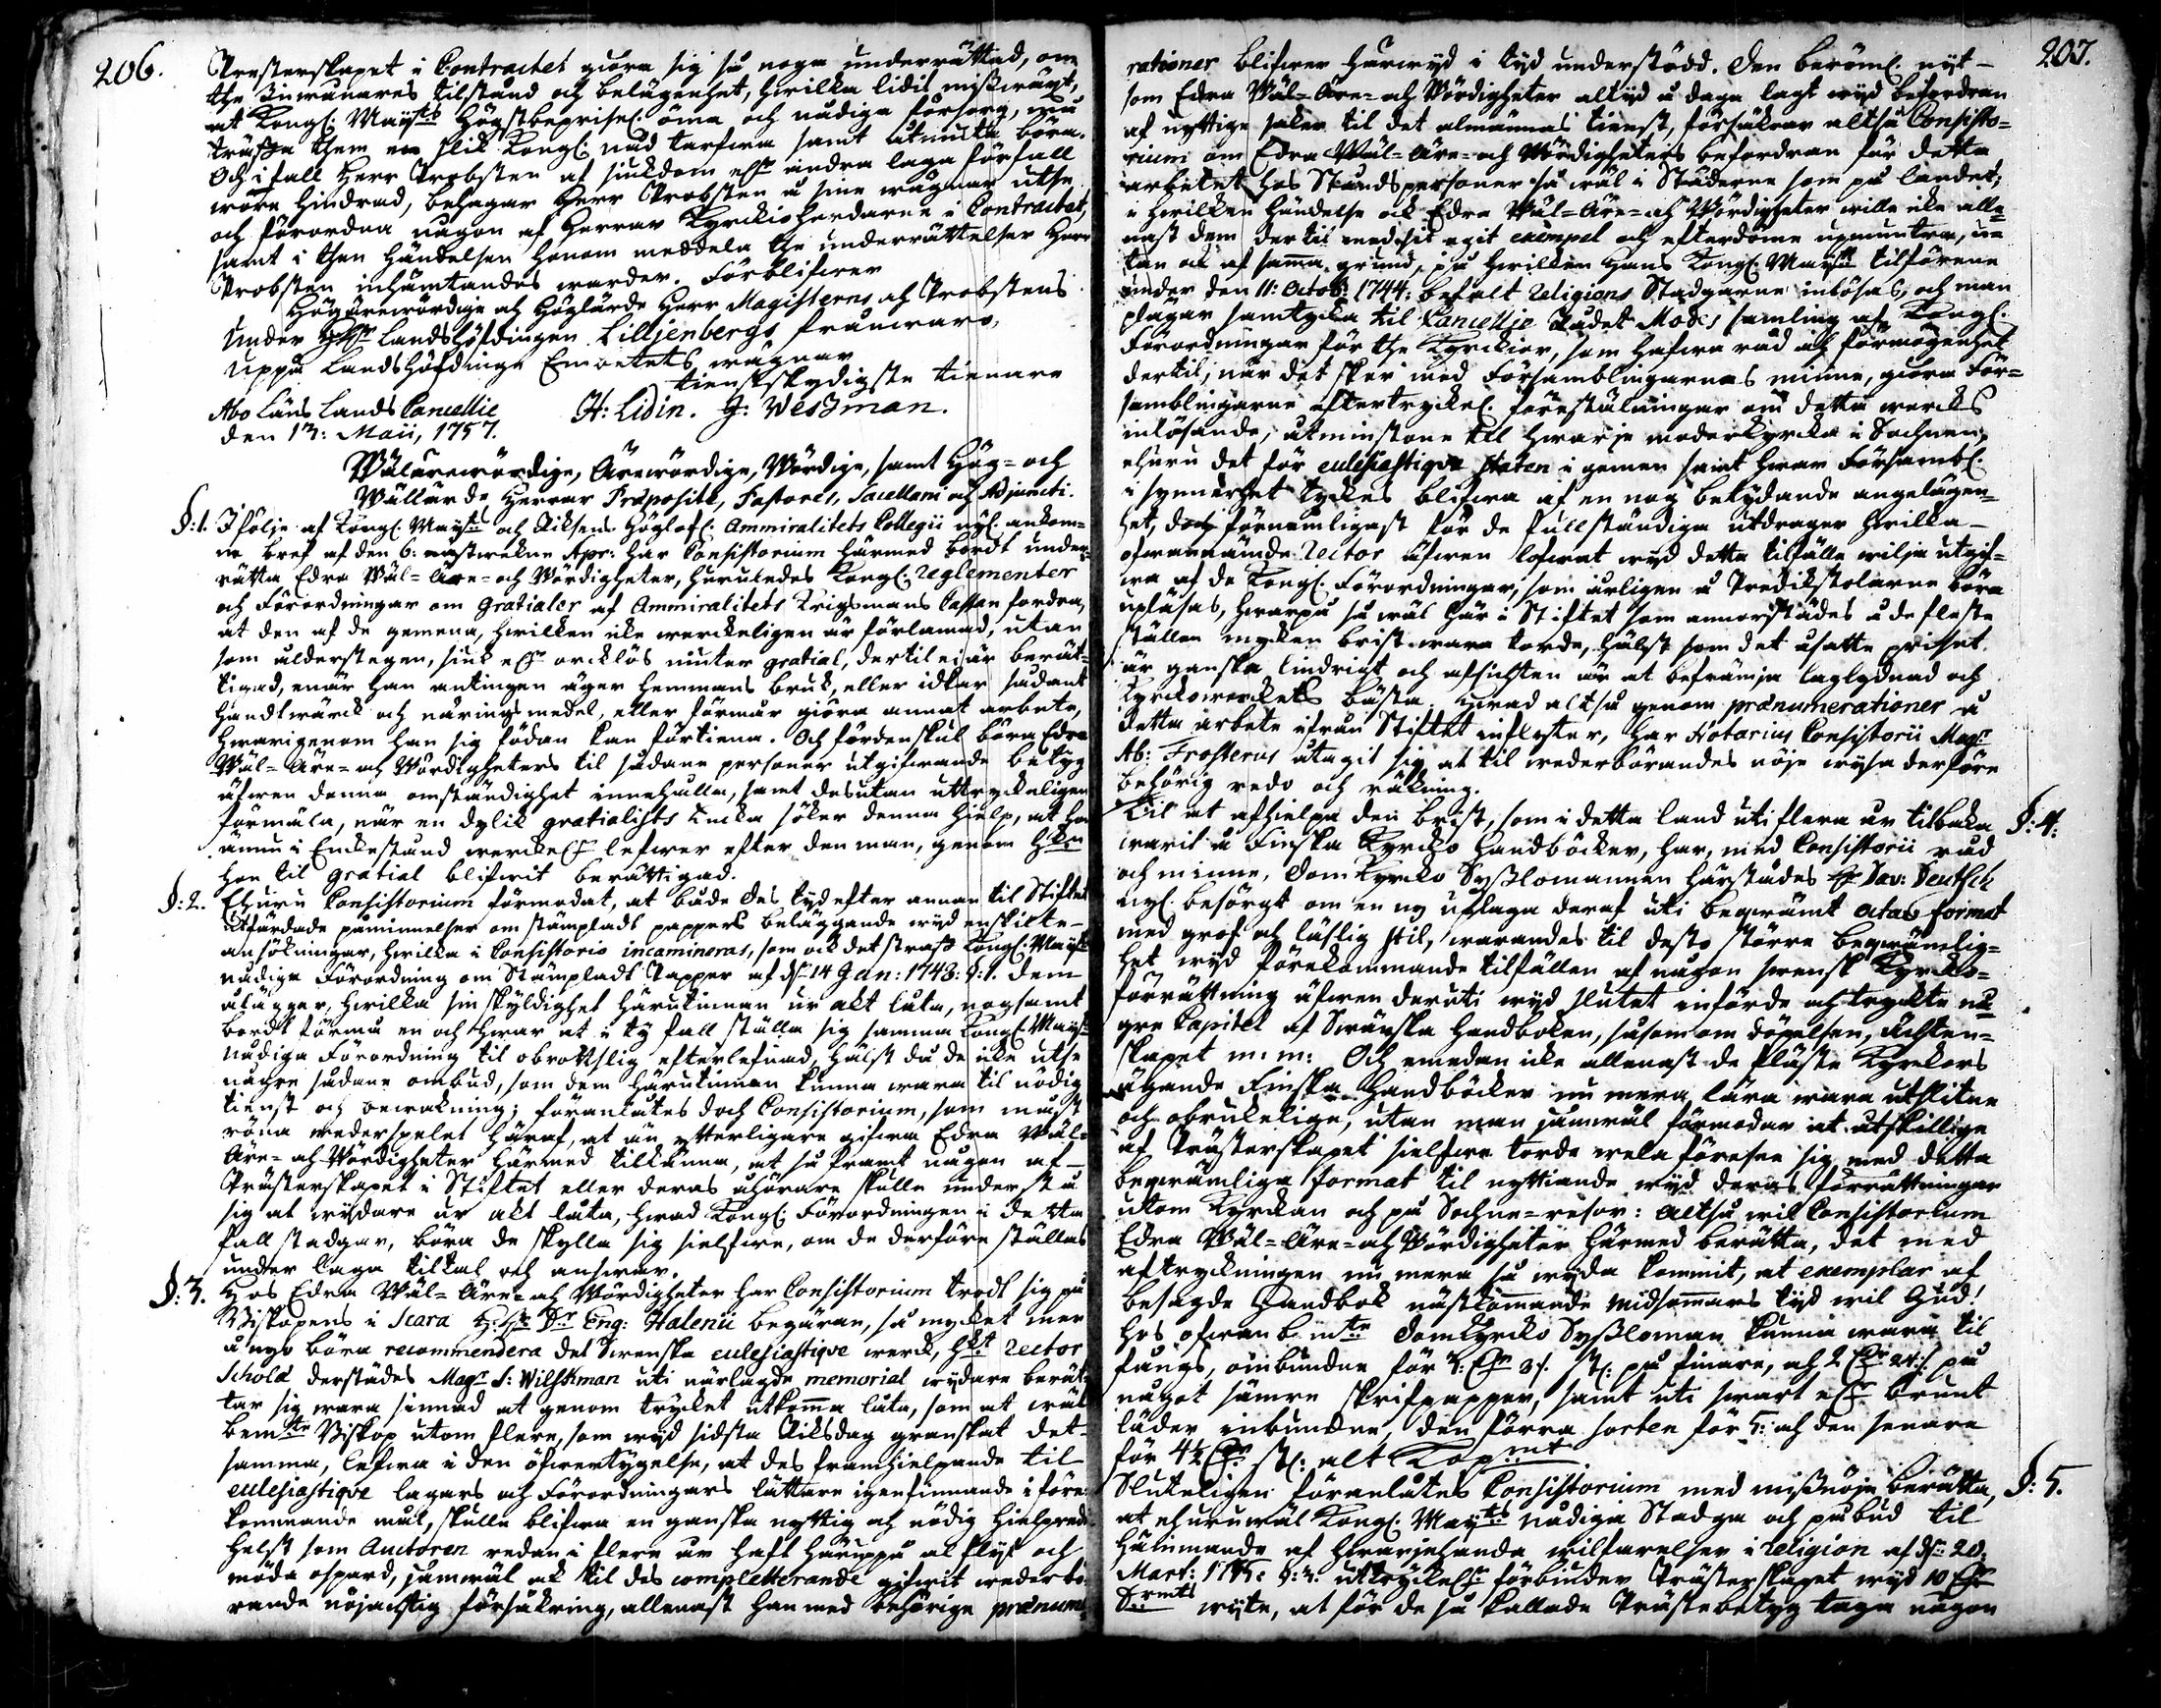 206.
Presterskapet i Contractet giöra sig så noga underrättad, om
the Inwånares tilstånd och belägenhet, hwilka lidit mißwäxt,
at Kongl: Maÿ:ts Högstbeprisel. öma och nådiga försorg, må
träffa them en slik Kongl: nåd tarfwa samt åtniuta böra.
Och i fall Herr Probsten af siukdom eller andra laga förfall
wore hindrad, behagar Herr Probsten å sine wägnar utse
och förordna någon af Herrar Kyrckioherdarne i Contractet,
samt i then händelsen honom meddela the underrättelser Herr
Probsten inhämtandes warder. Förblifwer
Högärewördige och Höglärde Herr Magisterns och Probstens
Under Herr Landshöfdingen Lilljenbergs frånwaro,
uppå Landshöfdinge Embetets wägnar
tienstskyldigste tienare
Åbo Läns Lands Cancellie H: Lidin. J: Wessman.
den 13: Maii, 1757.
Wälärewördige, Ärewördige, Wördige, samt Hög- och
Wällärde Herrar Præpositi, Pastores, Sacellani och Adjuncti.
§:1. I följe af Kongl: Maÿ:ts och Riksens Höglofl: Ammiralitets Collegii nyl. ankom-
ne bref af den 6: nästwekne Apr: har Consistorium härmed bordt under-
rätta Edra Wäl- Äre- och Wördigheter, huruledes Kongl: Reglementer
och Förordningar om Gratialer af Ammiralitets Krigsmans Cassan fordra,
at den af de gemena, hwilken icke werckeligen är förlamad, utan
som ålderstegen, siuk eller orcklös niuter gratial, dertil ei är berät-
tigad, enär han antingen äger hemmans bruk, eller idkar sådant
handtwärck och näringsmedel, eller förmår giöra annat arbete,
hwarigenom han sig födan kan förtiena. Och fördenskul böra Edra
Wäl- Äre- och Wördigheters til sådane personer utgifwande betyg
äfwen denna omständighet innehålla, samt desutan uttryckeligen
förmäla, när en dylik gratialists Encka söker denna hielp, at hon
ännu i Enckestånd werckel. lefwer efter den man, genom hwilken
hon til gratial blifwit berättigad.
§:2. Ehuru Consistorium förmodat, at både des tyd efter annan til Stiftet
utfärdade påminnelser om stämpladt pappers beläggande wyd enskilte
ansökningar, hwilka i Consistorio incamineras, som ock det straff Kongl: Maÿ:ts
nådiga Förordning om Stämpladt Papper af d: 14 Jan: 1748: §:1. dem
ålägger, hwilka sin skyldighet härutinnan ur akt låta, nogsamt
bordt förmå en och hwar at i ty fall ställa sig samma Kongl: Maÿ:ts
nådiga Förordning til obrottslig efterlefnad, hälst då de icke utse
någre sådane ombud, som dem härutinnan kunna wara til nödig
tienst och bewakning; föranlåtes doch Consistorium, som måst
röna wederspelet häraf, at än ytterligare gifwa Edra Wäl-
Äre- och Wördigheter härmed tilkänna, at så framt någon af
Prästerskapet i Stiftet eller deras åhörare skulle understå
sig at wydare ur akt låta, hwad Kongl: Förordningen i detta
fall stadgar, böra de skylla sig sielfwe, om de derföre ställas
under laga tiltal och answar.
§:3. Hos Edra Wäl- Äre- och Wördigheter har Consistorium trodt sig på
Biskopens i Scara H: Hr Dr Eng: Halenii begäran, så mycket mer
å nyo böra recommendera det Swenska eclesiastiqve werck, hwilket Rector
Scholæ derstädes Magr S: Wilskman uti närlagde memorial wydare berät-
tar sig wara sinnad at genom trycket utkoma låta, som at wäl-
bem:te Biskop utom flere, som wyd sidsta Riksdag granskat det-
samma, lefwa i den öfwertygelse, at des framhielpande til
eclesiastiqve lagars och Förordningars lättare igenfinnande i före-
kommande mål, skulle blifwa en ganska nyttig och nödig hielpreda
helst som Auctoren redan i flere år haft häruppå al flyt och
möda ospard, jämwäl ock til des completterande gifwit wederbö-
rande nöjachtig försäkring, allenast han med behörige prænume-
207.
rationer blifwer härwyd i tyd understödd. Den beröml. nyt-
som Edra Wäl- Äre- och Wördigheter altyd å daga lagt wyd befordran
af nyttige saker til det almännas tienst, försäkrar altså Consisto-
rium om Edra Wäl- Äre- och Wördigheters befordran för detta
arbetet hos Ståndspersoner så wäl i Städerne som på landet;
i hwilken händelse ock Edra Wäl- Äre- och Wördigheter wille icke alle-
nast dem dertil med sit egit exempel och efterdöme upmuntra, u-
tan ock af samma grund, på hwilken Hans Kongl: Maÿ:tt tilförene
under den 11: Octob: 1744: befalt Religions Stadgarne inlösas, och man
plägar samtycka til Cancellie Rådet Modées samling af Kongl:
Förordningar för the Kyrckior, som hafwa råd och förmögenhet
dertil, når det sker med Församblingarnas minne, giöra För-
samblingarne eftertryckel. föreställningar om detta wercks
inlösande, åtminstone til hwarje moderkyrcka i Sochnen,
ehuru det för eclesiastiqve staten i gemen samt hwar Försambl.
i synnerhet tyckes blifwa af en nog betydande angelägen-
het, doch förnemligast för de fullständiga utdrager hwilka
ofwannämde Rector äfwen lofwat wyd detta tilfälle wilja utgif-
wa af de Kongl: Förordningar, som årligen å Predikstolarne böra
upläsas, hwarpå så wäl här i Stiftet som annorstädes å de fleste
ställen mycken brist wara torde, hälst som det åsatte priset
är ganska lindrigt och afsichten är at befrämja laglydnad och
Kyrckowerckets bästa. Hwad altså genom prænumerationer å
detta arbete ifrån Stiftet inflyter, har Notarius Consistorii Magr
Ab: Frosterus åtagit sig at til wederbörandes nöje wysa derföre
behörig redo och räkning.
§:4. Til at afhielpa den brist, som i detta land uti flera år tilbaka
warit å Finska Kyrcko Handböcker, har, med Consistorii råd
och minne, Domkyrcko Sysslomannen härstädes Hr Dav: Deutsch
nyl. besörgt om en ny uplaga deraf uti beqwämt octav format
med grof och läslig stil, warandes til desto större beqwämlig-
het wyd förekommande tilfällen af någon swensk Kyrcko-
förrättning äfwen deruti wyd slutet införde och tryckte nå-
gre Capitel af Swänska Handboken, såsom om döpelsen, ächten-
skapet m: m: Och emedan icke allenast de fläste Kyrckors
ägande Finska Handböcker nu mera lära wara utslitne
och obrukelige, utan man jämwäl förmodar at åtskillige
af Prästerskapet sielfwe torde wela förese sig med detta
beqwämliga format til nyttiande wyd deras förrättningar
utom Kyrckan och på Sochne-resor: Altså wil Consistorium
Edra Wäl- Äre- och Wördigheter härmed berätta, det med
aftryckningen nu mera så wyda kommit, at exemplar af
besagde Handbok nästkommande midsommars tyd wil Gud!
hos ofwanbem:te Domkyrcko Syssloman kunna wara til
fångs, oinbundne för på finare, och på
något sämre skrifpapper, samt uti swart eller brunt
läder inbundne, den förra sorten för 5: och den senare
för 4½ alt Kop:mt
§:5. Sluteligen föranlåtes Consistorium med mißnöje berätta,
at ehuruwäl Kongl: Maÿ:ts nådiga Stadga och påbud til
hämmande af hwarjehanda wilfarelser i Religion af d: 20:
Mart: §:3: uttryckel. förbinder Prästerskapet wyd 10
wyte, at för de så kallade Prästebetyg taga någon